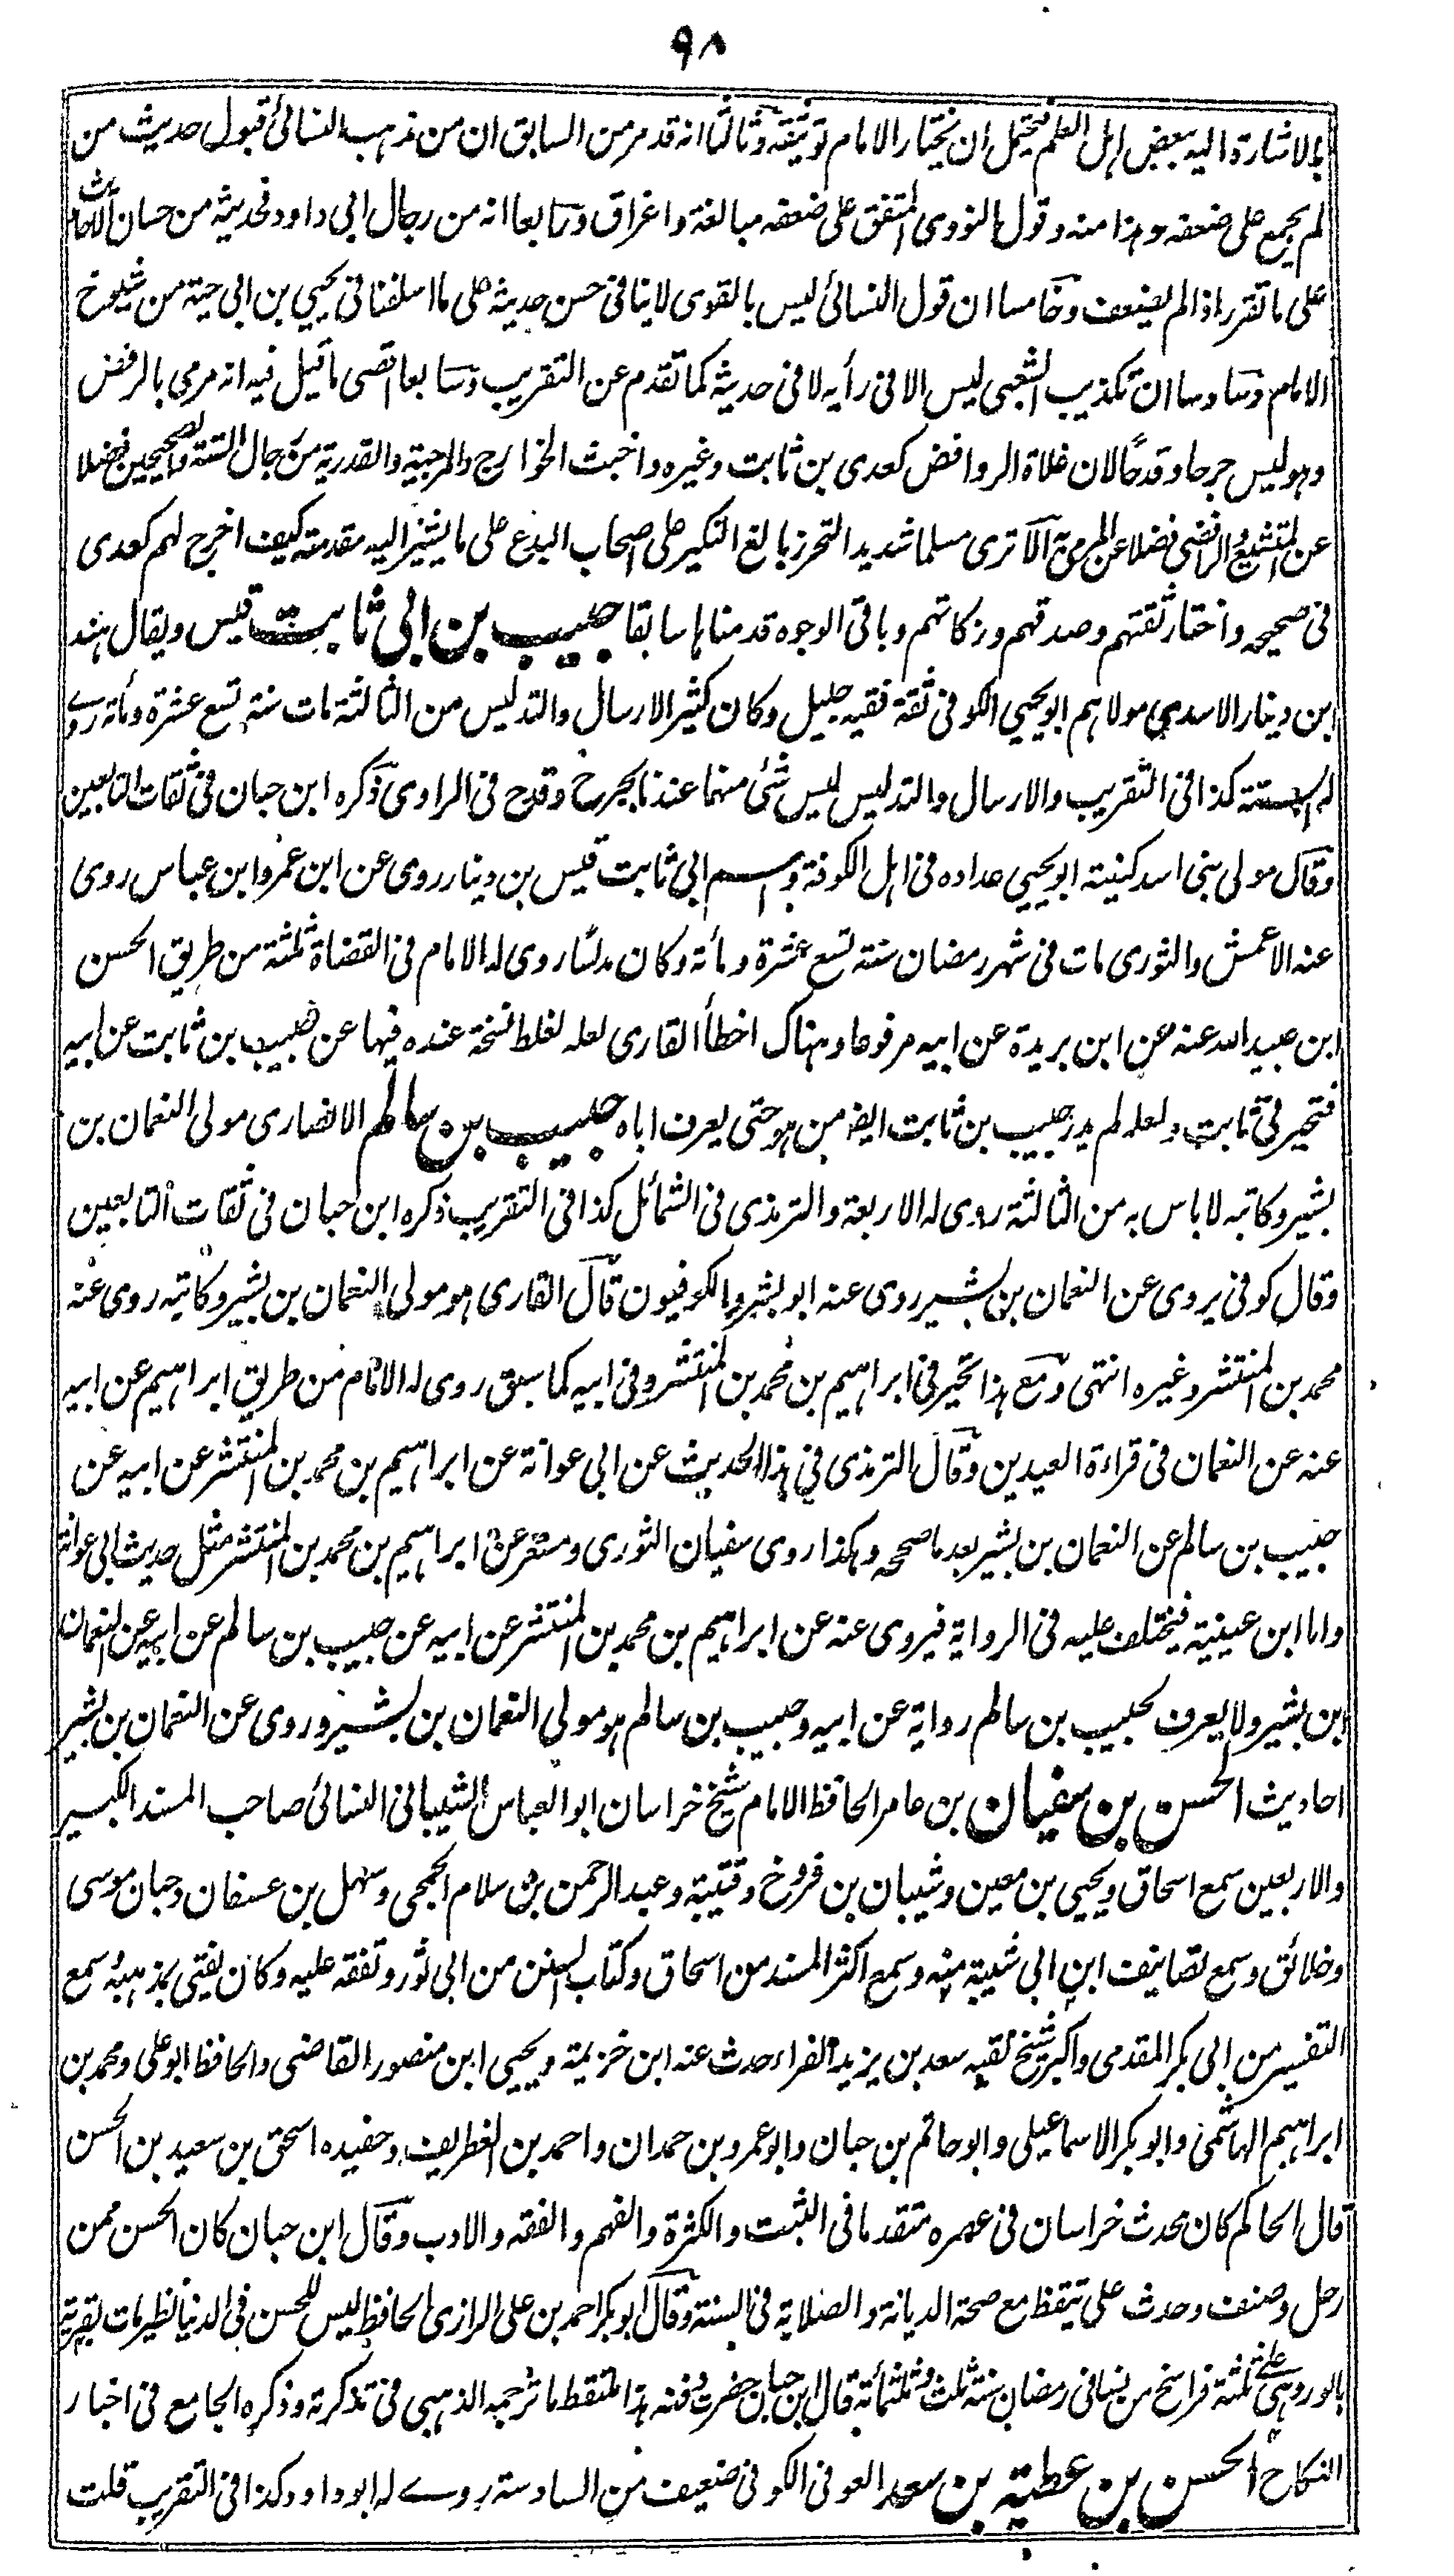 ٩٨
بالاشارة اليه بعض اهل العلم فيحتمل ان يختار الامام توثيقه وثالثا انه قد مر من السابق ان من مذهب النسائى قبول حديث من
لم يجمع على ضعفه وهذا منه وقول النووى المتفق على ضعفه مبالغة واغراق ورابعا انه من رجال ابى داود فحديثه من حسان الاحاديث
على ما تقرر اذا لم يضعف وخامسا ان قول النسائى ليس بالقوى لا ينافى حسن حديثه على ما اسلفنا فى يحيى بن ابى حية من شيوخ
الامام وسادسا ان تكذيب الشعبى ليس الا فى رأيه لا فى حديثه كما تقدم عن التقريب وسابعا اقصى ما قيل فيه انه رمى بالرفض
وهو ليس جرحا وقدحا لان غلاة الروافض كعدى بن ثابت وغيره واخبث الخوارج والمرجية والقدرية من رجال الستة والصحيحين فضلا
عن المتشيع الرافضى فضلا عن المرمى به الا ترى مسلما شديد التحرز بالغ النكير على اصحاب البدع على ما يشير اليه مقدمته كيف اخرج لهم كعدى
فى صحيحه واختار ثقتهم وصدقهم وزكاتهم وباقى الوجوه قدمناها سابقا حبيب بن ابى ثابت قيس ويقال هند
ابن دينار الاسدى مولاهم ابو يحيى الكوفى ثقة فقيه جليل وكان كثير الارسال والتدليس من الثالثة مات سنة تسع عشرة ومأته روے
له الستة كذا فى التقريب والارسال والتدليس ليس شئ منهما عندنا بجرح وقدح فى الراوى ذكره ابن حبان فى ثقات التابعين
وقال مولى بنى اسد كنيته ابو يحيى عداده فى اهل الكوفة واسم ابى ثابت قيس بن دينار روى عن ابن عمر وابن عباس روى
عنه الاعمش والثورى مات فى شهر رمضان سنة تسع عشرة ومأته وكان مدلسا روى له الامام فى القضاة ثلثة من طريق الحسن
ابن عبيد الله عنه عن ابن بريدة عن ابيه مرفوعا وهناك اخطأ القارى لعله لغلط نسخة عنده فيها عن حبيب بن ثابت عن ابيه
فتحير فى ثابت ولعله لم يدر حبيب بن ثابت ايضا من هو حتى يعرف اباه حبيب بن سالم الانصارى مولى النعمان بن
بشير وكاتبه لا باس به من الثالثة روى له الاربعة والترمذى فى الشمائل كذا فى التقريب ذكره ابن حبان فى ثقات التابعين
وقال كوفى يروى عن النعمان بن بشير روى عنه ابو بشر والكوفيون قال القارى هو مولى النعمان بن بشير وكاتبه روى عنه
محمد بن المنتشر وغيره انتهى ومع هذا تحير فى ابراهيم بن محمد بن المنتشر وفى ابيه كما سبق روى له الامام من طريق ابراهيم عن ابيه
عنه عن النعمان فى قراءة العيدين وقال الترمذى فى هذا الحديث عن ابى عوانة عن ابراهيم بن محمد بن المنتشر عن ابيه عن
حبيب بن سالم عن النعمان بن بشير بعد ما صححه وهكذا روى سفيان الثورى ومسعر عن ابراهيم بن محمد بن المنتشر مثل حديث ابى عوانة
واما ابن عيينة فيختلف عليه فى الرواية فيروى عنه عن ابراهيم بن محمد بن المنتشر عن ابيه عن حبيب بن سالم عن ابيه عن النعمان
ابن بشير ولا يعرف لحبيب بن سالم رواية عن ابيه وحبيب بن سالم هو مولى النعمان بن بشير وروى عن النعمان بن بشير
احاديث الحسن بن سفيان بن عامر الحافظ الامام شيخ خراسان ابو العباس الشيبانى النسائى صاحب المسند الكبير
والاربعين سمع اسحاق ويحيى بن معين وشيبان بن فروخ وقتيبة وعبد الرحمن بن سلام الجمحى وسهل بن عسفان وحبان موسى
وخلائق وسمع تصانيف ابن ابى شيبة منه وسمع اكثر المسند من اسحاق وكتاب السنن من ابى ثور وتفقه عليه وكان يفتى بمذهبه سمع
التفسير من ابى بكر المقدمى واكبر شيخ لقيه سعد بن يزيد الفراء حدث عنه ابن خزيمة ويحيى ابن منصور القاضى والحافظ ابو على ومحمد بن
ابراهيم الهاشمى وابو بكر الاسماعيلى وابو حاتم بن حبان وابو عمرو بن حمدان واحمد بن الغطريف وحفيده اسحق بن سعيد بن الحسن
قال الحاكم كان محدث خراسان فى عصره متقدما فى الثبت والكثرة والفهم والفقه والادب وقال ابن حبان كان الحسن ممن
رحل وصنف وحدث على تيقظ مع صحة الديانة والصلابة فى السنة وقال ابو بكر احمد بن على الرازى الحافظ ليس للحسن فى الدنيا نظير مات بقرية
بالوز وهى على ثلثة فراسخ من نسا فى رمضان سنة ثلث وثلثمأته قال ابن حبان حضرت دفنه هذا ملتقط ما ترجمه الذهبى فى تذكرته وذكره الجامع فى اخبار
النكاح الحسن بن عطية بن سعد العوفى الكوفى ضعيف من السادسة روے له ابو داود كذا فى التقريب قلت